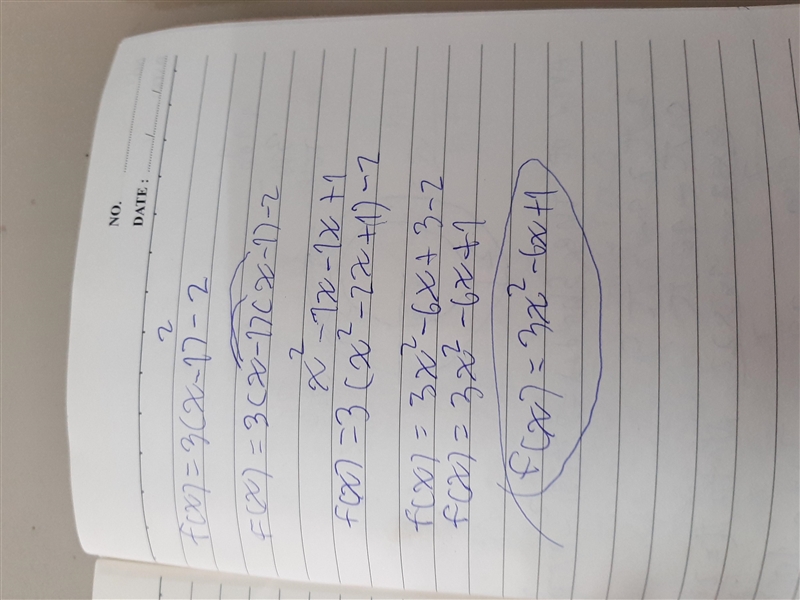 NO.
DATE : / /
f(x) = 3(x-1)² - 2
f(x) = 3(x-1)(x-1)-2
x²-1x-1x+1
f(x) = 3(x²-2x+1)-2
f(x) = 3x²-6x+3-2
f(x) = 3x²-6x+1
f(x) = 3x²-6x+1